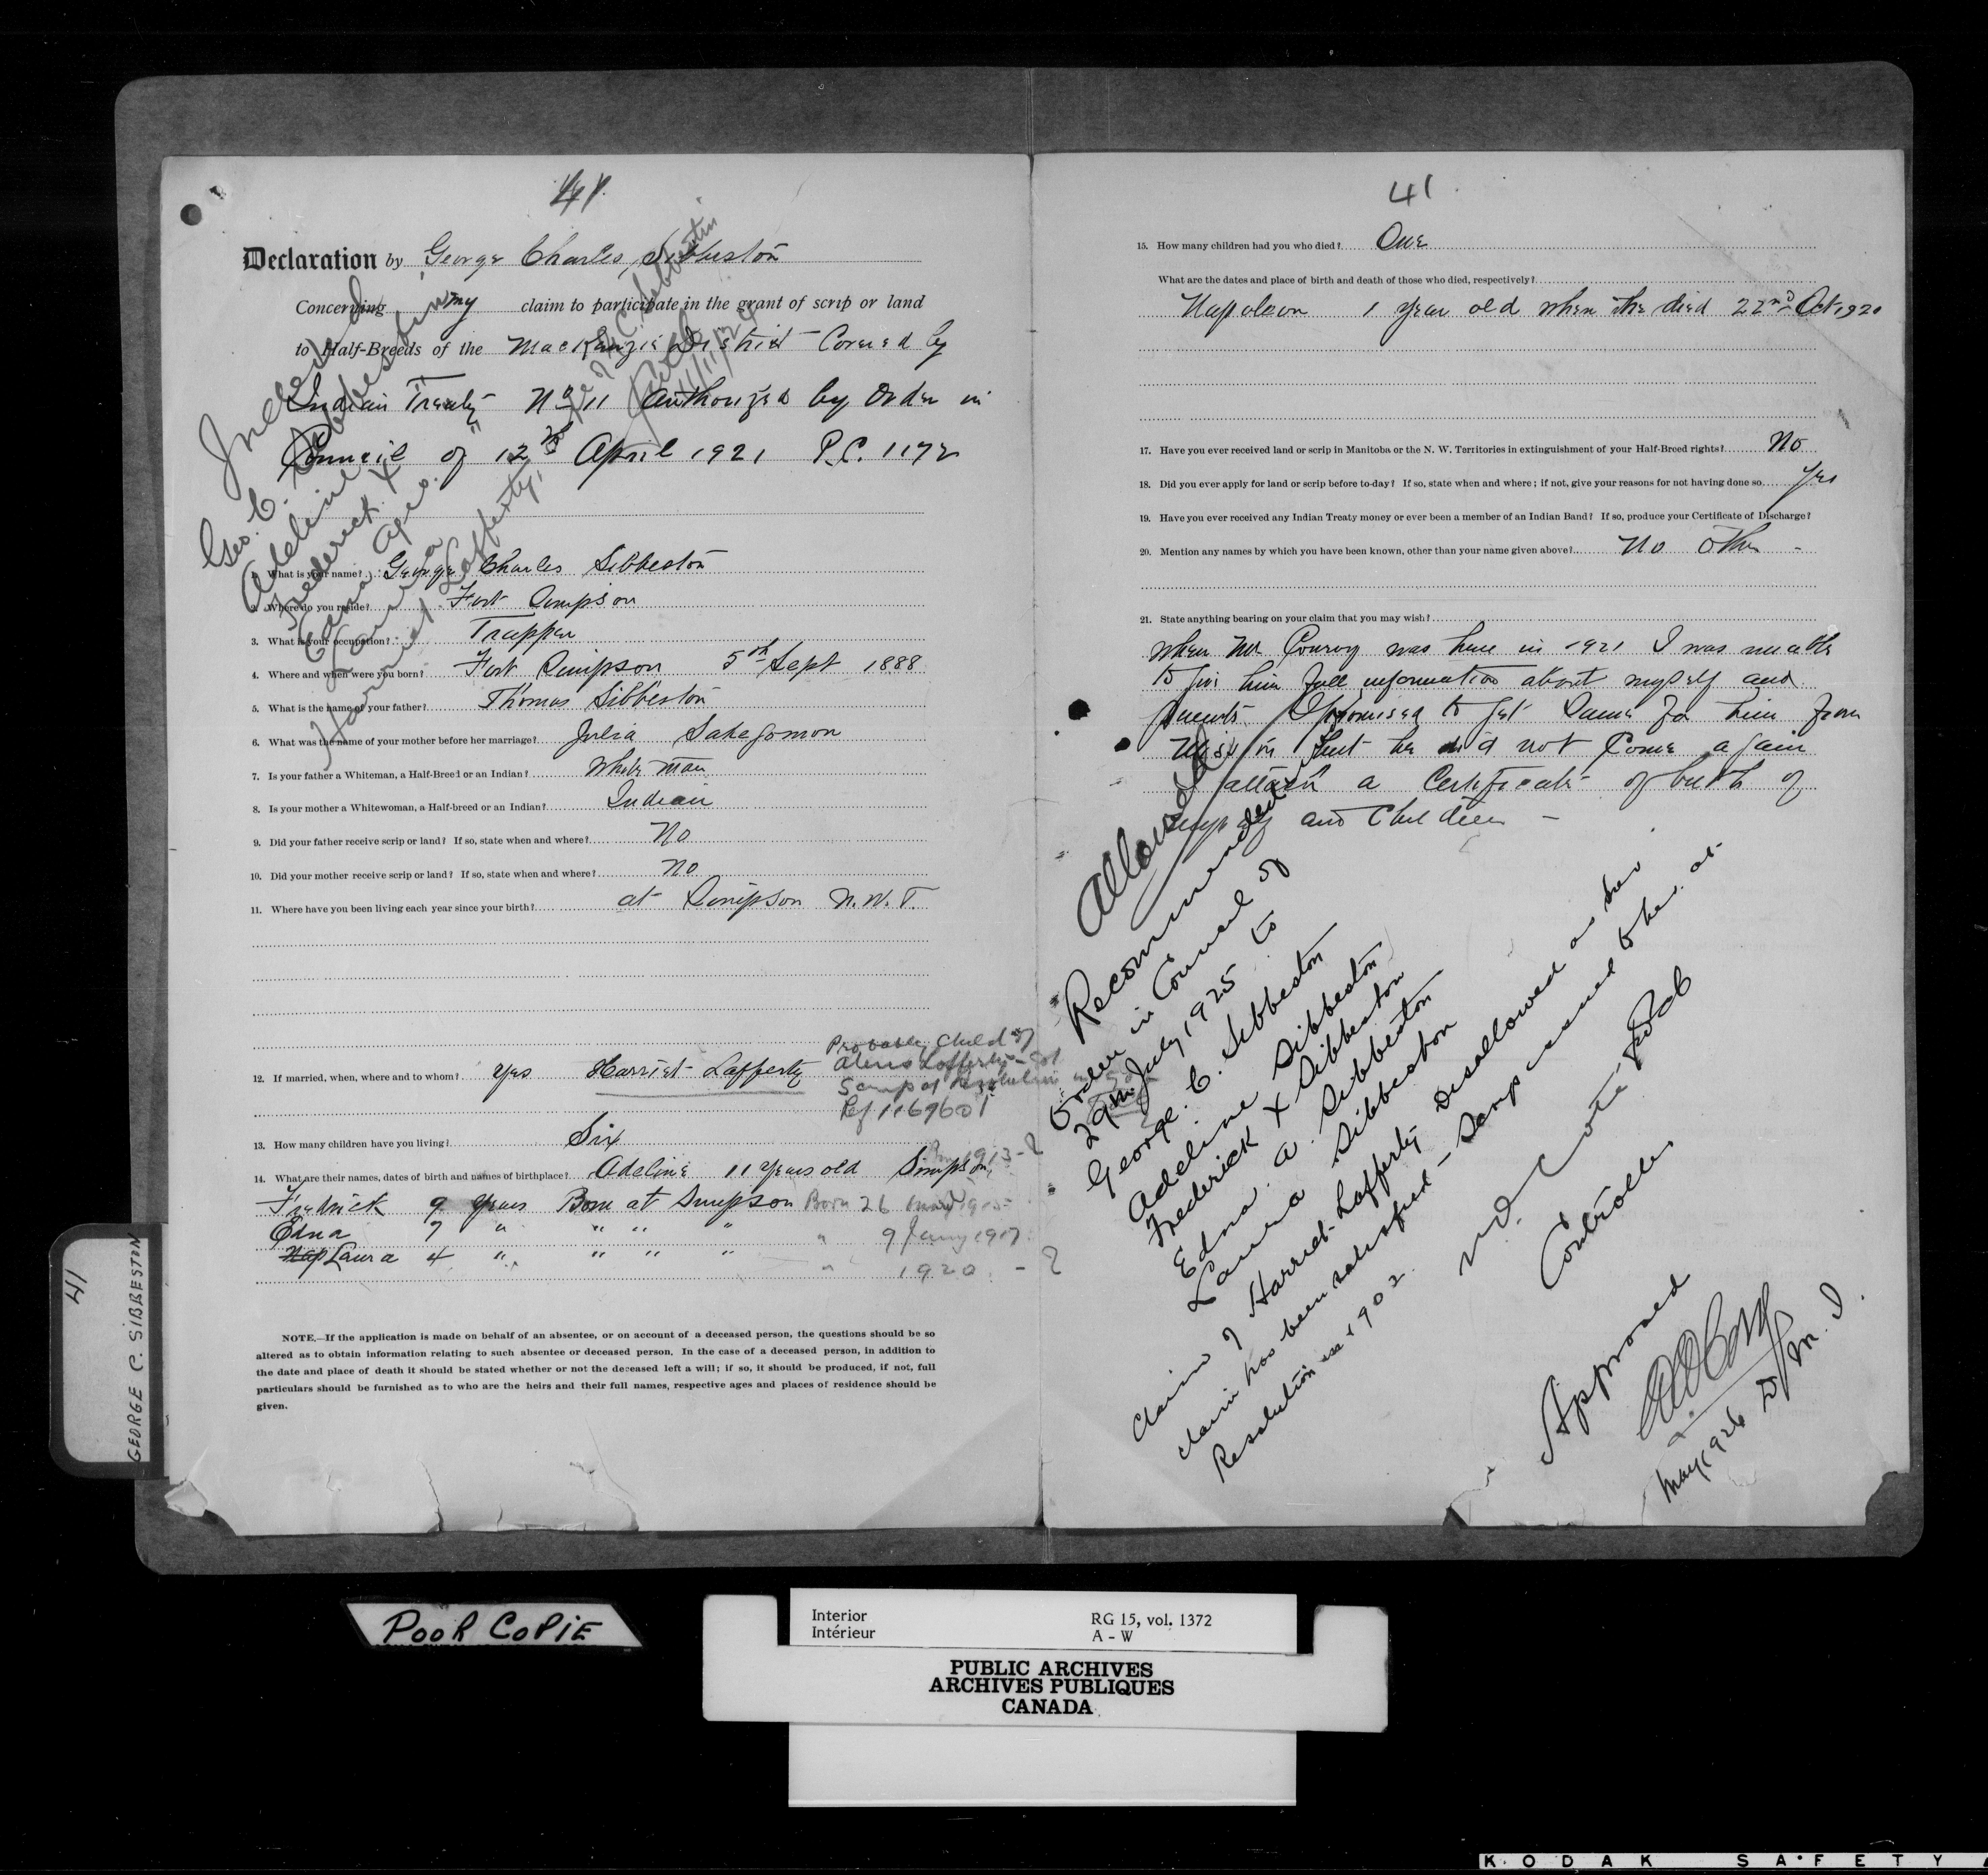 41
Declaration by George Charles Sibbeston
Concerning my claim to participate in the grant of scrip or land
to Half-Breeds of the MacKenzie District Covered by
Indian Treaty No 11 Authorized by Order in
Council of 12th April 1921 P.C. 1172
Indexed
Geo. C. Sibbeston
Adeline "
Frederick X
Edna Agie.
Laura
Harriet Lafferty,
11/11/24
1. What is your name? George Charles Sibbeston
2. Where do you reside? Fort Simpson
3. What is your occupation? Trapper
4. Where and when were you born? Fort Simpson 5th Sept 1888
5. What is the name of your father? Thomas Sibbeston
6. What was the name of your mother before her marriage? Julia Sakagomon
7. Is your father a Whiteman, a Half-Breed or an Indian? White man
8. Is your mother a Whitewoman, a Half-breed or an Indian? Indian
9. Did your father receive scrip or land? If so, state when and where? No
10. Did your mother receive scrip or land? If so, state when and where? No
11. Where have you been living each year since your birth? at Simpson N.W.T.
Probably Child of
Alexis Lafferty - Got
Scrip at Resolution
Ref 1169601
12. If married, when, where and to whom? Yes Harriet Lafferty
13. How many children have you living? Six
1913 - ?
14. What are their names, dates of birth and names of birthplace? Adeline 11 years old Simpson,
Fredrick 9 years Born at Simpson Born 26 1915
Edna 7 " " " " " 9 Jany 1917
Nap Laura 4 " " " " " 1920. - ?
NOTE.—If the application is made on behalf of an absentee, or on account of a deceased person, the questions should be so
altered as to obtain information relating to such absentee or deceased person. In the case of a deceased person, in addition to
the date and place of death it should be stated whether or not the deceased left a will; if so, it should be produced, if not, full
particulars should be furnished as to who are the heirs and their full names, respective ages and places of residence should be
given.
41
GEORGE C. SIBBESTON
41
15. How many children had you who died? One
What are the dates and place of birth and death of those who died, respectively?
Napoleon 1 year old when he died 22nd Oct 1920
17. Have you ever received land or scrip in Manitoba or the N. W. Territories in extinguishment of your Half-Breed rights? No
18. Did you ever apply for land or scrip before to-day? If so, state when and where; if not, give your reasons for not having done so Yes
19. Have you ever received any Indian Treaty money or ever been a member of an Indian Band? If so, produce your Certificate of Discharge?
20. Mention any names by which you have been known, other than your name given above? No other -
21. State anything bearing on your claim that you may wish?
When Mr Conroy was here in 1921 I was unable
to give him full information about myself and
parents I promised to get same for him from
Mission but he did not come again
attach a Certificate of birth of
myself and Children -
Allowed
Recommended
Order in Council of
29th July, 1925 to
George. C. Sibbeston
Adeline Sibbeston
Frederick X Sibbeston
Edna. A. Sibbeston
Laura Sibbeston
Claim of Harriet Lafferty Disallowed as her
claim has been satisfied - Scrip issued to her at
Resolution in 1902.
N.O. Cote
Controller
Approved
D. M. I.
May 1926
POOR COPIE
Interior
Intérieur
RG 15, vol. 1372
A - W
PUBLIC ARCHIVES
ARCHIVES PUBLIQUES
CANADA
KODAK SAFETY